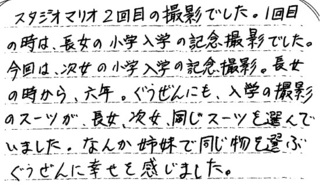 スタジオマリオ2回目の撮影でした。1回目
の時は、長女の小学入学の記念撮影でした。
今回は、次女の小学入学の記念撮影。長女
の時から、六年。ぐうぜんにも、入学の撮影
のスーツが、長女、次女、同じスーツを選んで
いました。なんか姉妹で同じ物を選ぶ
ぐうぜんに幸せを感じました。